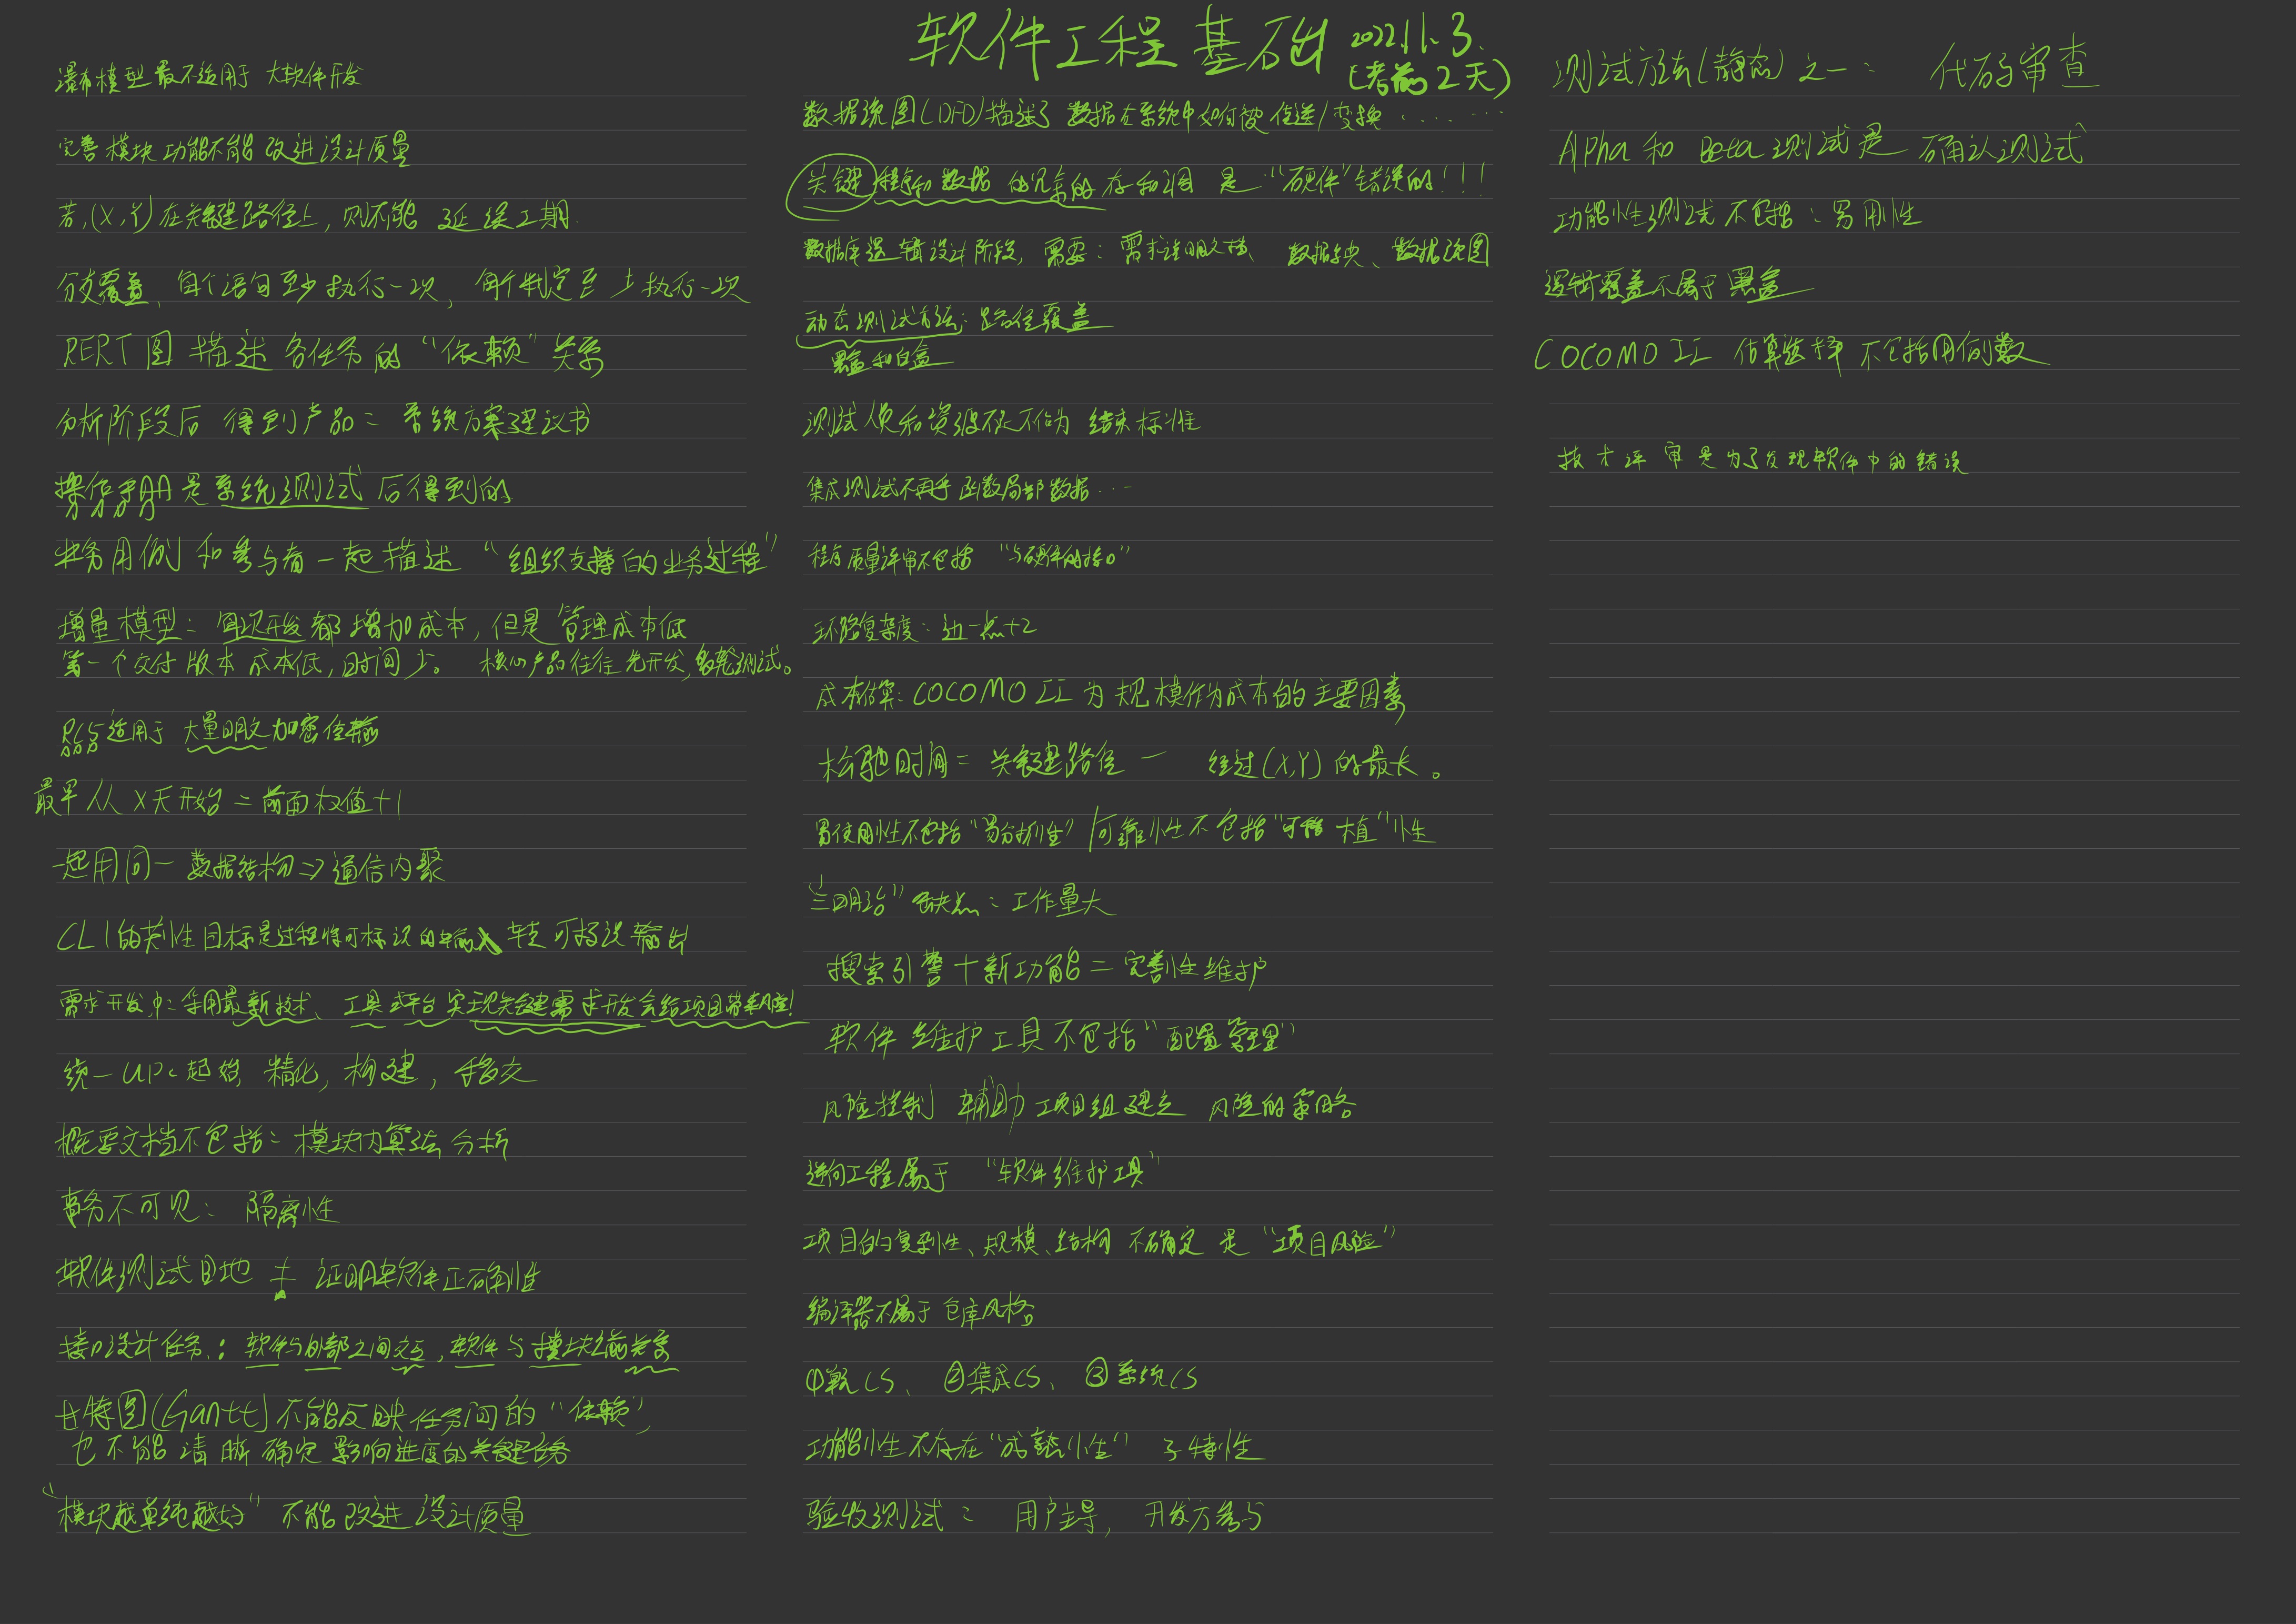 软件工程基础 2022.11.3.
(考前2天)
瀑布模型最不适用于 大软件开发
完善模块功能不能改进设计质量
若,(X,Y)在关键路径上,则不能 延误工期.
分支覆盖,每个语句至少执行一次,每个判定至少执行一次
PERT图 描述 各任务的“依赖”关系
分析阶段后 得到产品= 系统方案建议书
操作手册是系统测试后得到的
业务用例和参与者一起描述 “组织支持的业务过程”
增量模型: 每次开发都增加成本,但是管理成本低
第一个交付版本成本低,时间少。 核心产品往往先开发,多轮测试。
RC5适用于 大量明文加密传输
最早从X天开始=前面权值+1
一起用同一数据结构=>通信内聚
CL1的共性目标是过程将可标识的输入转可标识输出
需求开发中:采用最新技术、工具或平台实现关键需求开发会给项目带来风险!
统一UP: 起始,精化,构建,移交
概要文档不包括: 模块内算法分析
事务不可见: 隔离性
软件测试目地 ≠ 证明软件正确性
接口设计任务: 软件与外部之间交互,软件与模块之间关系
甘特图(Gantt)不能反映任务间的“依赖”,
也不能清晰确定影响进度的关键任务
“模块越单纯越好”不能改进设计质量
数据流图(DFD)描述了 数据在系统中如何被传送/变换........
关键程序和数据 的冗余的存和调 是“硬件”错误的!!!
数据库逻辑设计阶段,需要: 需求说明文档、数据字典、数据流图
动态测试方法: 路径覆盖
黑盒和白盒
测试人员和资源不足不作为 结束标准
集成测试不再乎函数局部数据...
程序质量评审不包括 “与硬件的接口”
环路复杂度: 边-点+2
成本估算: COCOMO II 为规模作为成本的主要因素
松弛时间= 关键路径 - 经过(X,Y)的最长。
易使用性不包括“易分析性” /可靠性不包括“可移植”性
“三明治”缺点: 工作量大
搜索引擎+新功能=完善性维护
软件维护工具不包括“配置管理”
风险控制 辅助项目组建立 风险的策略
逆向工程属于 “软件维护工具”
项目的复杂性、规模、结构不确定 是“项目风险”
编译器不属于仓库风格
①单元CS、②集成CS、③系统CS
功能性不存在“成熟性”子特性
验收测试: 用户主导, 开发方参与
测试方法(静态)之一: 代码审查
Alpha和Beta测试是 确认测试
功能性测试不包括: 易用性
逻辑覆盖不属于黑盒
COCOMO II 估算选择 不包括用例数
技术评审是为了发现软件中的错误